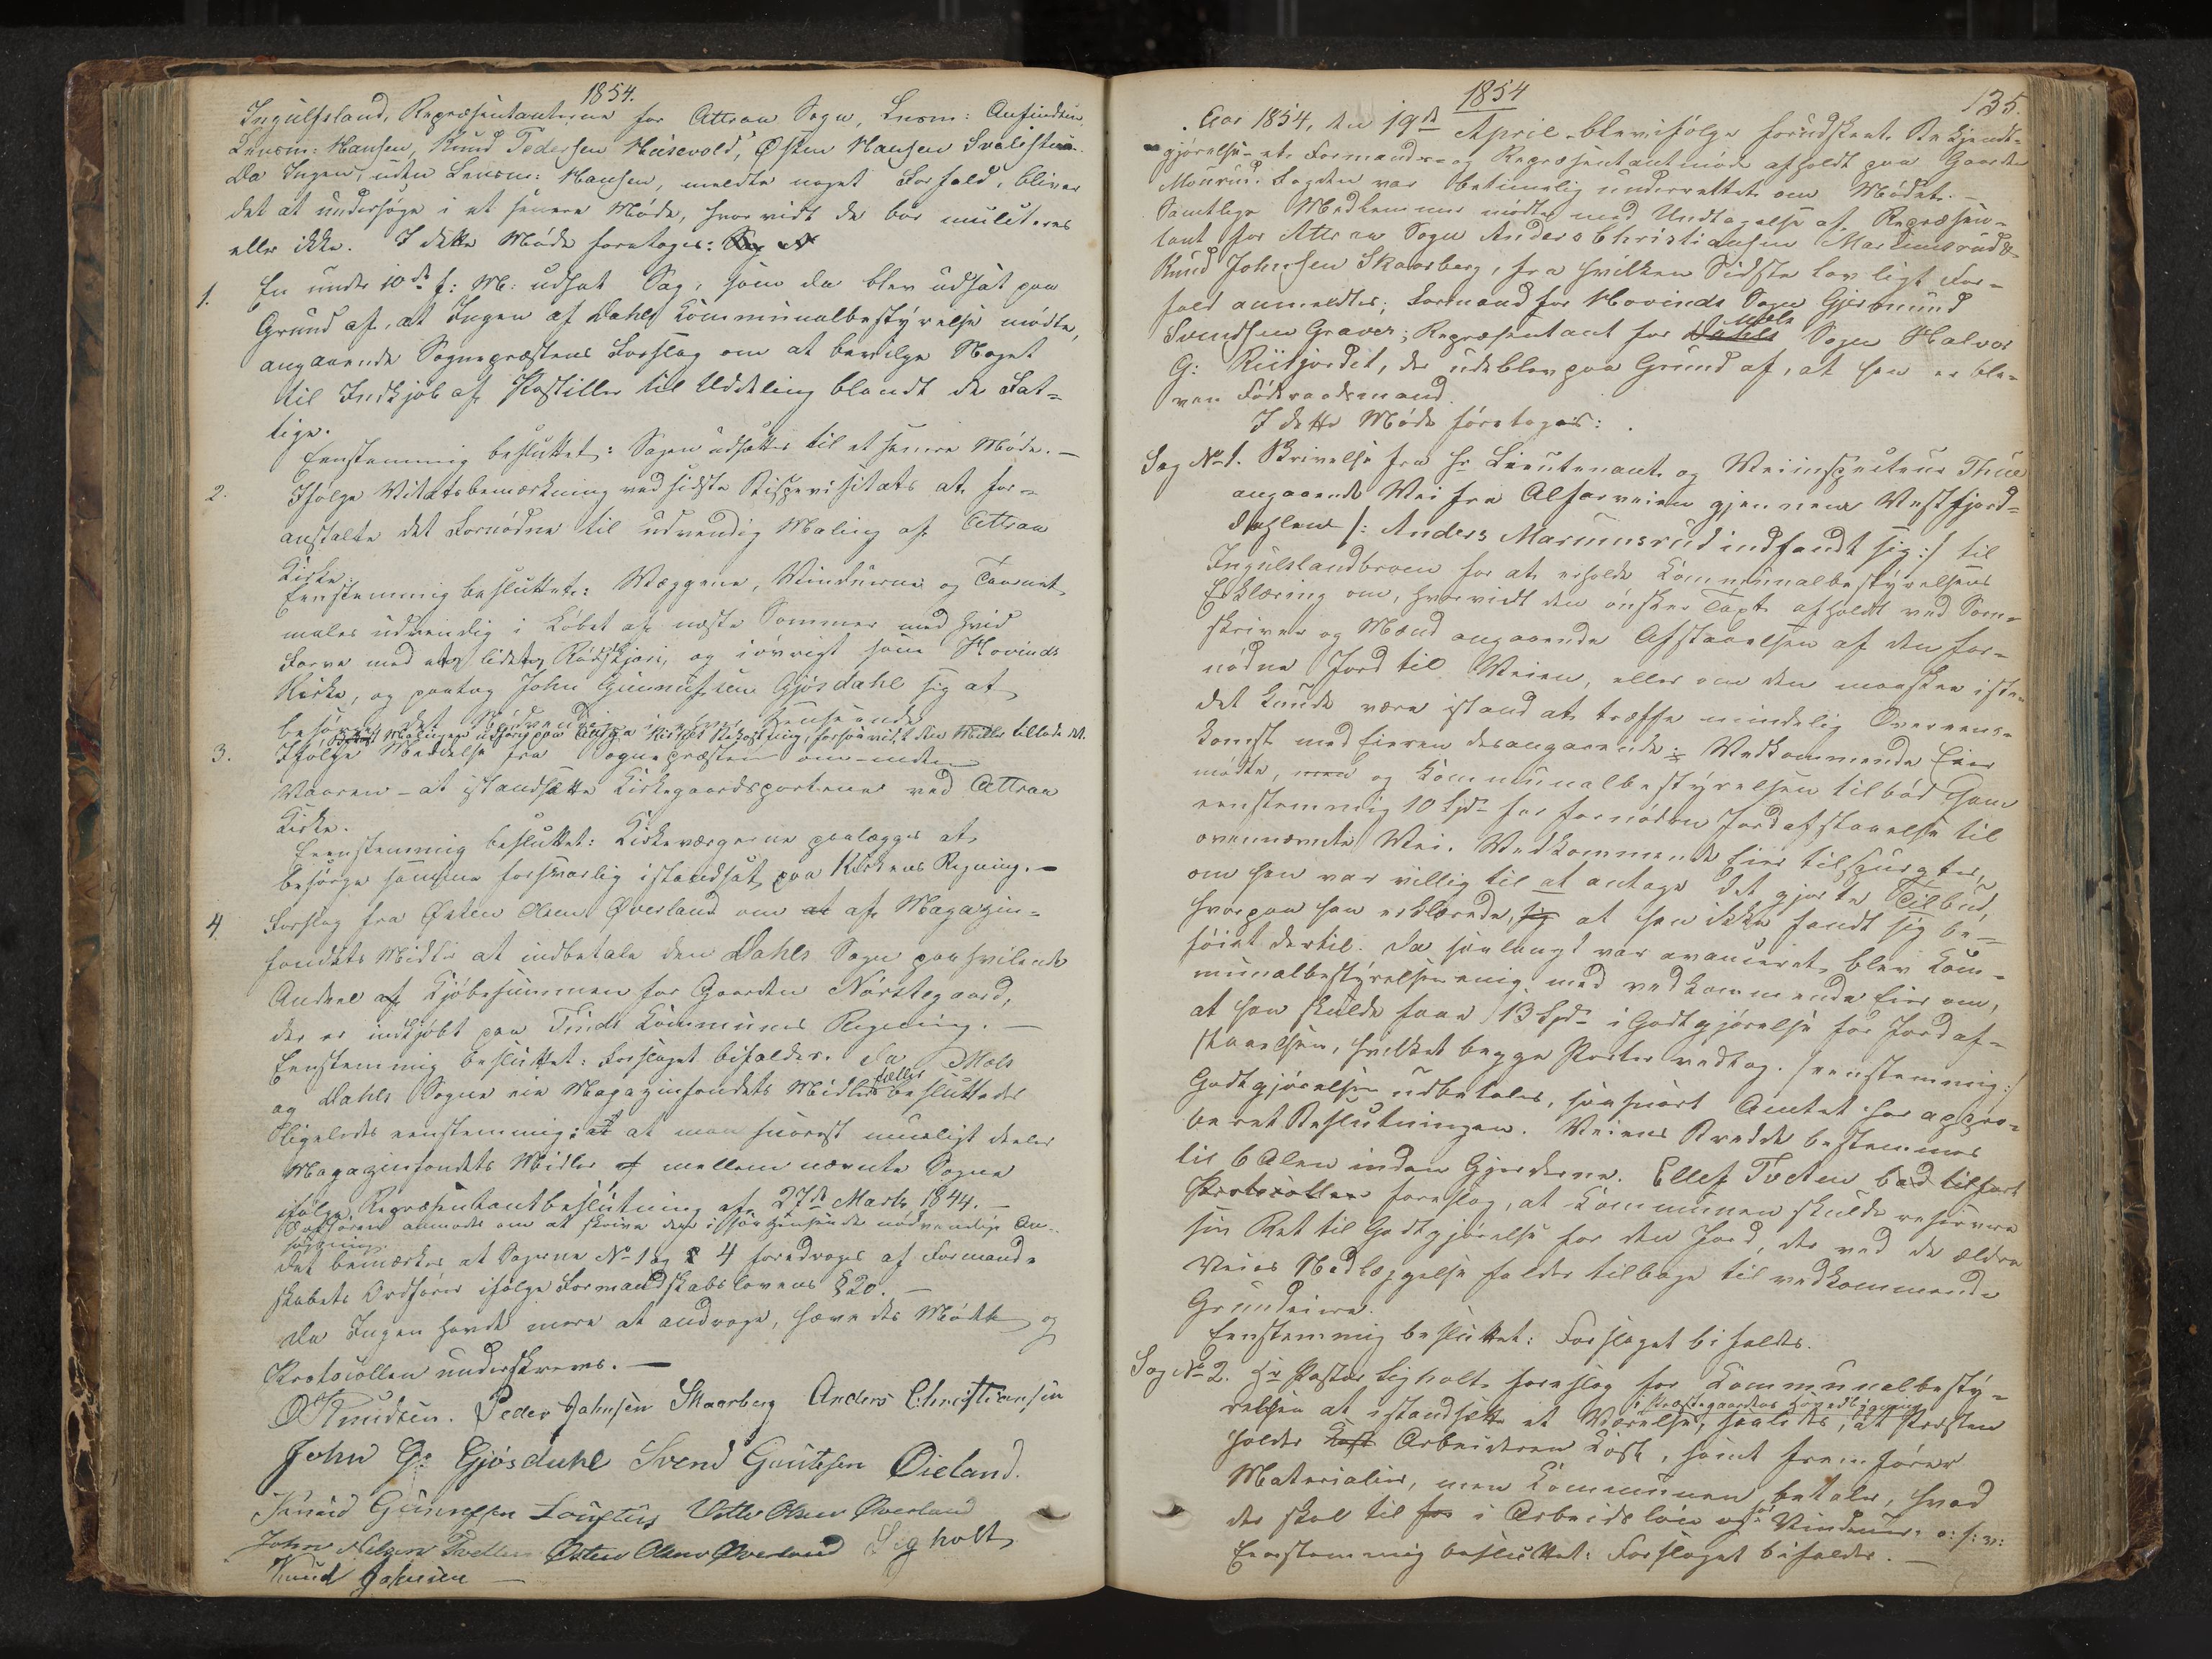 1854.
Ingulfsland, Repræsentanterne for Attraa Sogn, Lensm: Anfindsen,
Lensm: Hansen, Knud Pedersen Huusevold, Østen Hansen
Da Ingen, uden Lensm: Hansen, meldte noget Forfald, bliver
det at undersøge i et senere Møde, hvorvidt de bør mulcteres
eller ikke. I dette Møde foretoges: Sag N
1. En under 10de f: M: udsat Sag, som da blev udsat paa
Grund af, at Ingen af Dahls Kommunalbestyrelse mødte,
angaaende Sognepræstens Forslag om at bevilge Noget
til Indkjøb af Postiller til Uddeling blandt de Fat-
tige.
Eenstemmig besluttet: Sagen udsættes til et senere Møde. —
2. Ifølge Visitatsbemærkning ved sidste Bispevisitats at for-
anstalte det Fornødne til udvendig Maling af Attraa
Kirke.
Eenstemmig besluttet: Væggene, Vinduerne og Taarnet
males udvendig i Løbet af næste Sommer med hvid
Farve med et lidet Rødskjær, og iøvrigt som Hovinds
Kirke, og paatog John Gunnufsen Gjøsdahl sig at
besørge det Nødvendige i enhver Henseende
Malingen udføres paa Kirkes Bekostning, forsaavidt dens Midler tillade det.
3. Ifølge Meddelelse fra Sognepræsten om inden
Vaaren - at istandsætte Kirkegaardsportene ved Attraa
Kirke.
Eenstemmig besluttet: Kirkeværgerne paalægges at
besørge samme forsvarlig istandsat paa Kirkens Regning. —
4. Forslag fra Østen Olsen Øverland om at af Magazin-
fondets Midler at indbetale den Dahls Sogn paahvilende
Andeel af Kjøbesummen for Gaarden Nørstegaard,
der er indkjøbt paa Tinds Kommunes Regning. —
Eenstemmig besluttet: Forslaget bifaldes. Da Mels
og Dahls Sogne eie Magazinfondets Midler fælles besluttedes
ligeledes eenstemmig: at at man snarest mueligt deeler
Magazinfondets Midler af mellem nævnte Sogne
ifølge Repræsentantbeslutning af 27de Marts 1844. —
Ordføreren anmodes om at skrive den i saa Henseende nødvendige An-
søgning.
Det bemærkes at Sagerne No 1 og 4 foredroges af Formand-
skabets Ordfører ifølge Formandskabslovens § 20. —
Da Ingen havde mere at andrage, hævedes Mødet og
Protocollen underskreves. —
O Knudsen. Peder Johnsen Skaarberg Anders Christiansen
John G: Gjøsdahl Svend Gautesen Øieland.
Knud Gunnufsen Loufthus Osten Olsen Øverland
John Nilsen Østen Olsen Øverland Sigholt
Knud Johnsen —
1854
135.
Aar 1854, den 19de April blev ifølge forudskeet Bekjendt-
gjørelse et Formands- og Repræsentantmøde afholdt paa Gaarden
Mourud. Fogden var betimelig underrettet om Mødet. —
Samtlige Medlemmer mødte med Undtagelse af Repræsen-
tant for Attraa Sogn Anders Christiansen Marumsrud &
Knud Johnsen Skaarberg, fra hvilken Sidste lovligt For-
fald anmeldtes; Formand for Hovinds Sogn Gjermund
Svendsen Graver; Repræsentant for Dahls Mæls Sogn Halvor
G: Riisjordet, der udeblev paa Grund af, at han er ble-
ven Fødraadsmand.
I dette Møde foretoges:
Sag No 1. Skrivelse fra Hr Lieutenant og Veiinspecteur Thue
angaaende Vei fra Alfarveien gjennem Vestfjord-
dahlen /: Anders Marumsrud indfandt sig :/ til
Ingulslandbroen for at erholde Kommunalbestyrelsens
Erklæring om, hvorvidt den ønsker Taxt afholdt ved Soren-
skriver og Mænd angaaende Afstaaelsen af den for-
nødne Jord til Veien, eller om den maaskee iste-
det kunde være istand at træffe mindelig Overeens-
komst med Eieren desangaaende: Vedkommende Eier
mødte, men og Kommunalbestyrelsen tilbød ham
eenstemmig 10 Spd for fornøden Jordafstaaelse til
ovennævnte Vei. Vedkommende Eier tilspurgtes,
om han var villig til at antage det gjorte Tilbud,
hvorpaa han erklærede, sig at han ikke fandt sig be-
føiet dertil. Da saalangt var avanceret, blev Kom-
munalbestyrelsen enig med vedkommende Eier om,
at han skulde faae 13 Spd i Godtgjørelse for Jordaf-
staaelsen, hvilket begge Parter vedtog. /eenstemmig:/
Godtgjørelsen udbetales, saasnart Amtet har appro-
beret Beslutningen. Veiens Bredde bestemmes
til 6 Alen inden Gjærderne. Ellef Tveten bad tilført
Protocollen Foreslag, at Kommunen skulde reservere
sin Ret til Godtgjørelse for den Jord, der ved de ældre
Veies Nedlæggelse falder tilbage til vedkommende
Grundeiere.
Eenstemmig besluttet: Forslaget bifaldes.
Sag No 2. Hr Pastor Sigholt foreslog for Kommunalbesty-
relsen at istandsætte et Værelse i Præstegaardens Hovedbygning, saaledes, at Præsten
holder Kost Arbeideren Kost, samt fremfører
Materialier, men Kommunen betaler, hvad
der skal til for i Arbeidsløn og for Vinduer, o: s: v:
Eenstemmig besluttet: Forslaget bifaldes. —